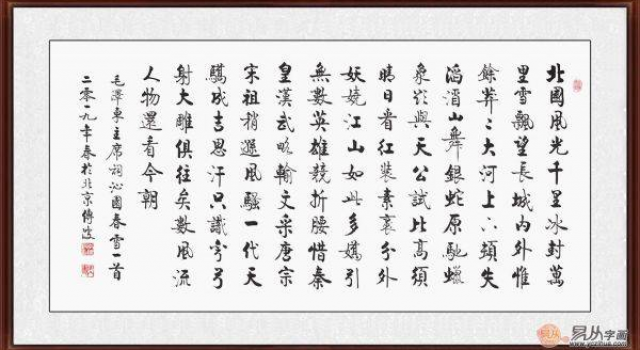 北國風光千里冰封萬
里雪飄望長城內外惟
餘莽〻大河上下頓失
滔滔山舞銀蛇原馳蠟
象欲與天公試比高須
晴日看紅裝素裹分外
妖嬈江山如此多嬌引
無數英雄競折腰惜秦
皇漢武略輸文采唐宗
宋祖稍遜風騷一代天
驕成吉思汗只識彎弓
射大雕俱往矣數風流
人物還看今朝
毛澤東主席詞沁園春雪一首
二零一九年春於北京
易从字画
www.yczihua.com